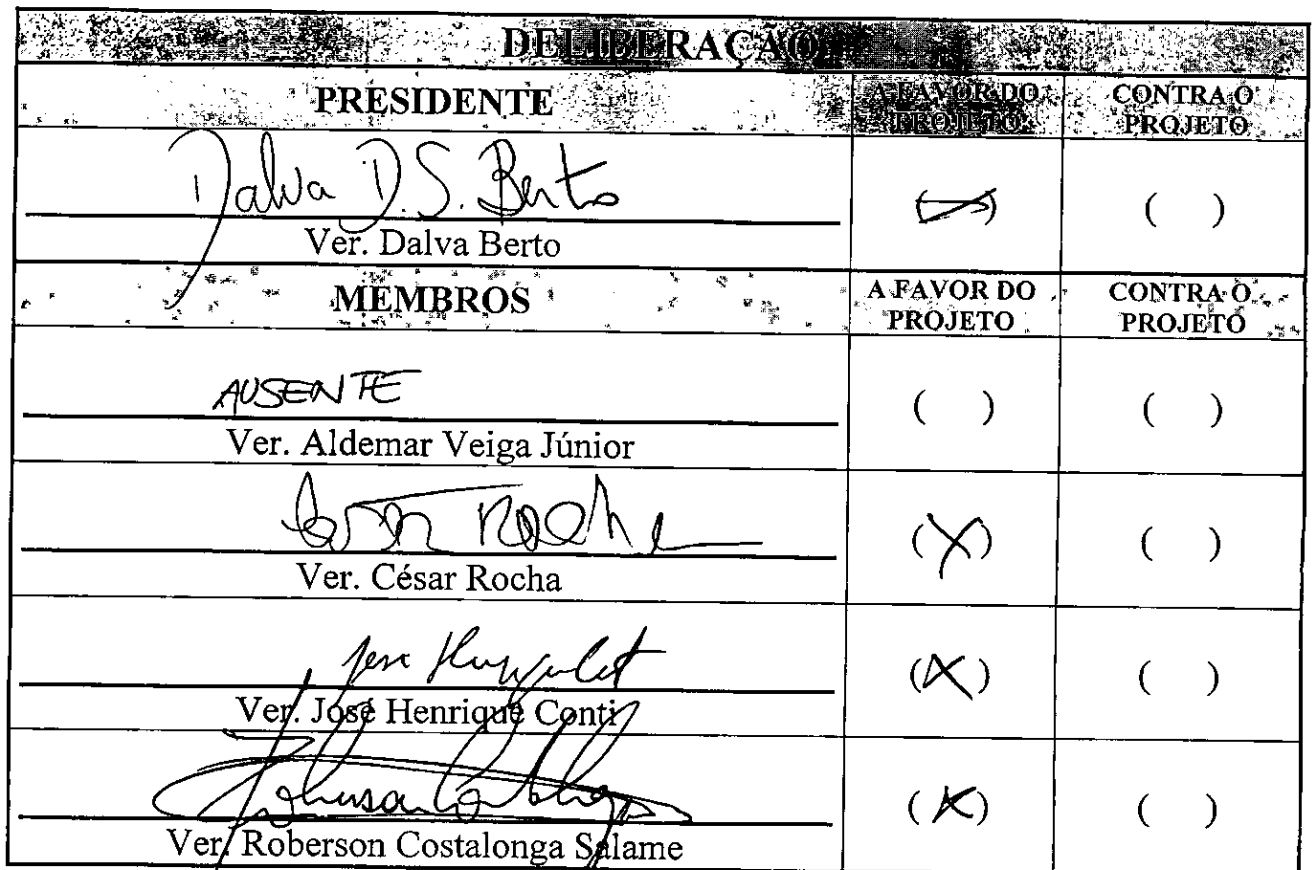 DELIBERAÇÃO
PRESIDENTE A FAVOR DO PROJETO CONTRA O PROJETO
Dalva D.S. Berto
Ver. Dalva Berto ( ) ( )
MEMBROS A FAVOR DO PROJETO CONTRA O PROJETO
AUSENTE
Ver. Aldemar Veiga Júnior ( ) ( )
Rocha
Ver. César Rocha (X) ( )
Ver. José Henrique Conti (X) ( )
Ver. Roberson Costalonga Salame (X) ( )